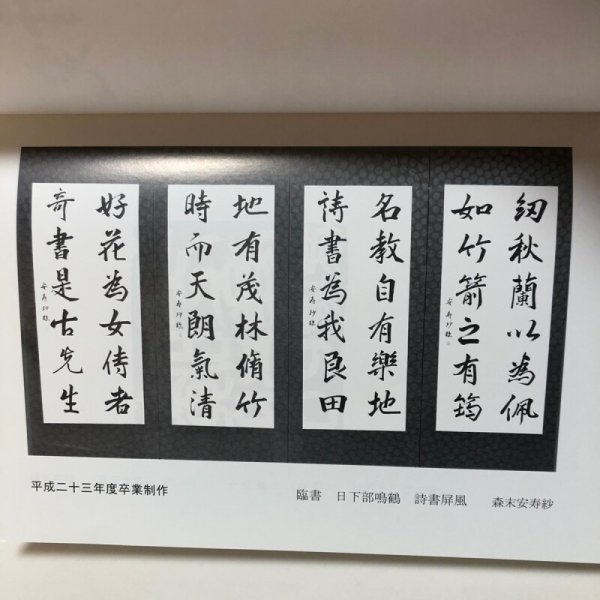 紉秋蘭以為佩
如竹箭之有筠
安寿紗臨
名教自有樂地
詩書為我良田
安寿紗臨
地有茂林脩竹
時而天朗氣清
安寿紗臨
好花為女侍者
奇書是古先生
安寿紗臨
平成二十三年度卒業制作
臨書 日下部鳴鶴 詩書屏風 森末安寿紗